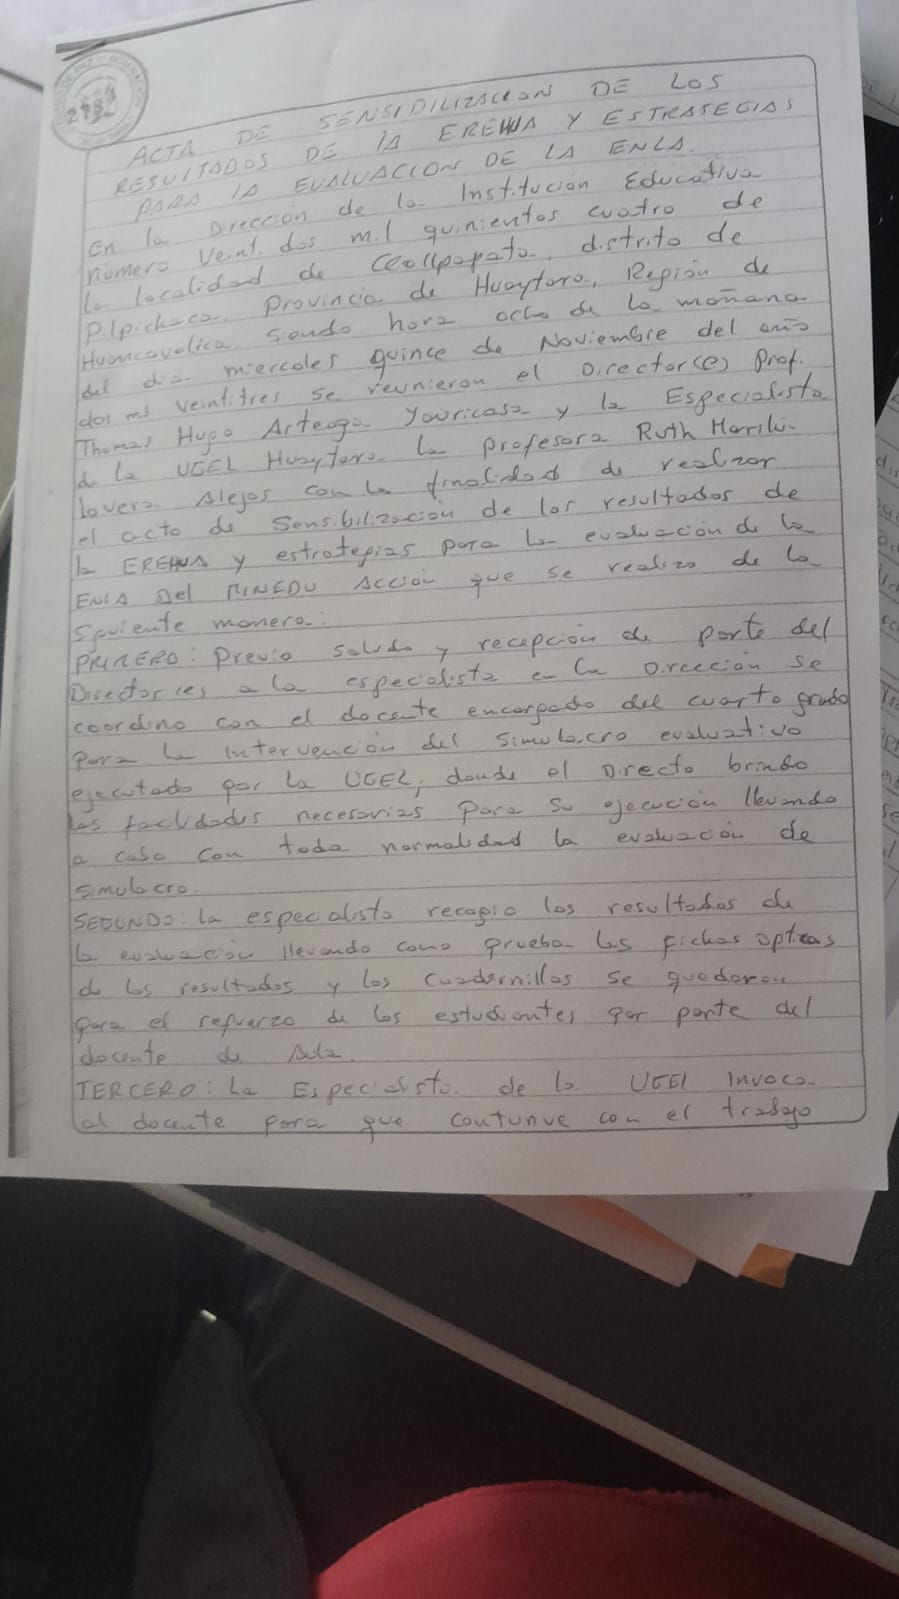 ACTA DE SENSIDILIZACION DE LOS
RESULTADOS DE LA EREHUA Y ESTRATEGIAS
PARA LA EVALUACION DE LA ENLA.
En la Dirección de la Institución Educativa
número Veint. dos mil quinientos cuatro de
la localidad de Ccollpapata, distrito de
Pilpichaca, Provincia de Huaytara, Región de
Huancavelica, siendo hora ocho de la mañana
del dia miercoles quince de Noviembre del año
dos mil veintitres se reunieron el Director(e) Prof.
Thomas Hugo Arteaga Yauricasa y la Especialista
de la UGEL Huaytara la profesora Ruth Marilú
Lovera Alejos con la finalidad de realizar
el acto de Sensibilización de los resultados de
la EREHUA y estrategias para la evaluación de la
ENLA Del MINEDU Acción que se realizo de la
Siguiente manera:
PRIMERO: Previo saludo y recepción de parte del
Director a la especialista en la Dirección se
coordino con el docente encargado del cuarto grado
para la Intervención del Simulacro evaluativo
ejecutado por la UGEL, donde el Directo brindo
las facilidades necesarias para su ejecución llevando
a cabo con toda normalidad la evaluación de
simulacro.
SEGUNDO: La especialista recogio los resultados de
la evaluación llevando como prueba las fichas opticas
de los resultados y los Cuadernillos se quedaron
para el refuerzo de los estudiantes por parte del
docente de Aula.
TERCERO: La Especialista de la UGEL Invoca
al docente para que contunue con el trabajo